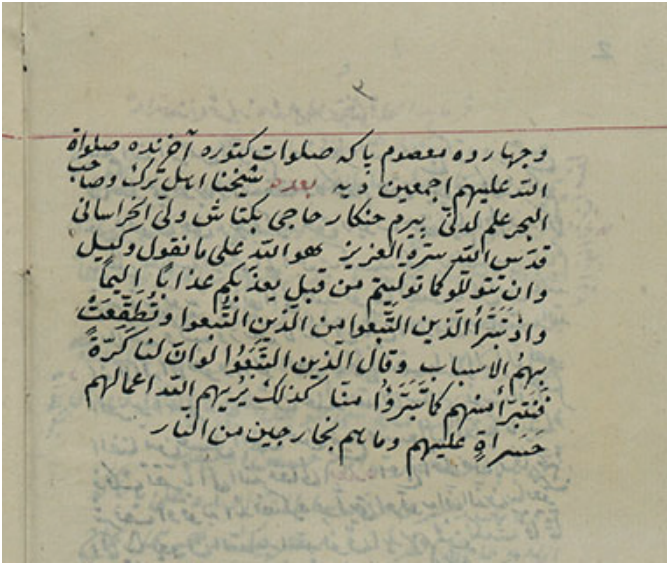 ٣
وجهارده معصوم پاكه صلوات كتوره آخرنده صلواة
الله عليهم اجمعين ديه بعده شيخنا اهل ترك وصاحب
البحر علم لدنّى پيرم حنكار حاجى بكتاش ولىّ الخراسانى
قدّس الله سرّه العزيز هو الله على ما نقول وكيل
وان تتولّلو كما تولّيتم من قبل يعذّبكم عذابًا اليمًا
واذ تَبَرَّأ الّذين التَّبعوا من الّذين التَّبعوا وتُطَقِّعَتْ
بِهِمُ الاسباب وقال الّذين التَّبَعُوا لو انّ لنا كَرَّةً
فنتبرّأ منهم كما تَبَرَّؤُا منّا كذلك يُريهم الله اعمالهم
حَسَراةٍ عليهم وما هم بخارجين من النّار